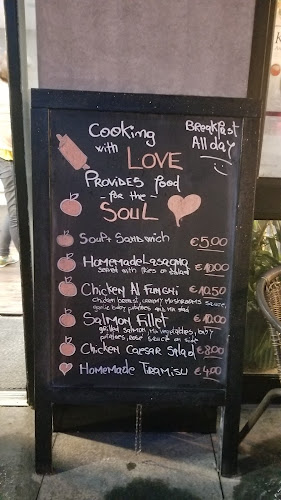 Cooking
with LOVE
Provides food
- for the -
SOUL
Breakfast
All day
Soup + Sandwich €5,00
Homemade Lasagna €10.00
served with fries or salad
Chicken Al Funghi €10.50
chicken breast, creamy mushrooms sauce,
garlic baby potatoes and mix salad
Salmon Fillet €10.00
grilled salmon, mix vegetables, baby
potatoes, rose sauce on side
Chicken Caesar Salad €8.00
Homemade Tiramisu €4,00